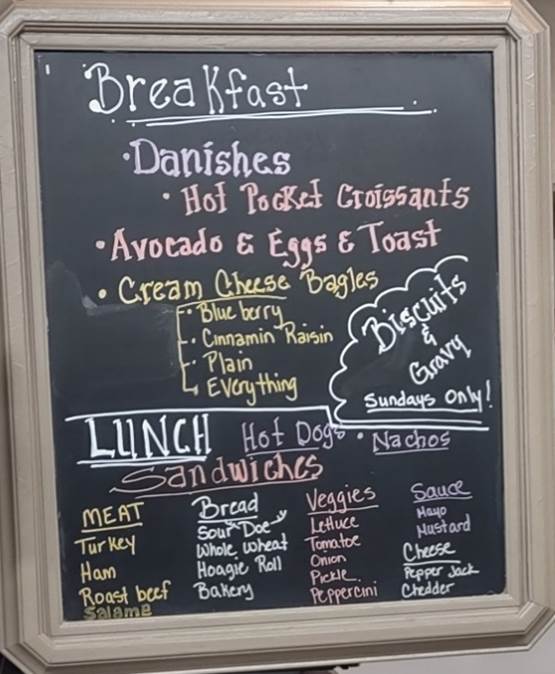 Breakfast
· Danishes
· Hot Pocket Croissants
· Avocado & Eggs & Toast
· Cream Cheese Bagles
· Blue berry
· Cinnamin Raisin
· Plain
Everything
Biscuits
&
Gravy
Sundays Only!
LUNCH Hot Dogs · Nachos
Sandwiches
MEAT
Turkey
Ham
Roast beef
Salame
Bread
Sour Doe
Whole wheat
Hoagie Roll
Bakery
Veggies
Lettuce
Tomatoe
Onion
Pickle
Peppercini
Sauce
Mayo
Mustard
Cheese
Pepper Jack
Chedder